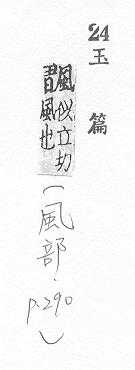 24 玉篇
飁似立切
風也
(風部．p.290)